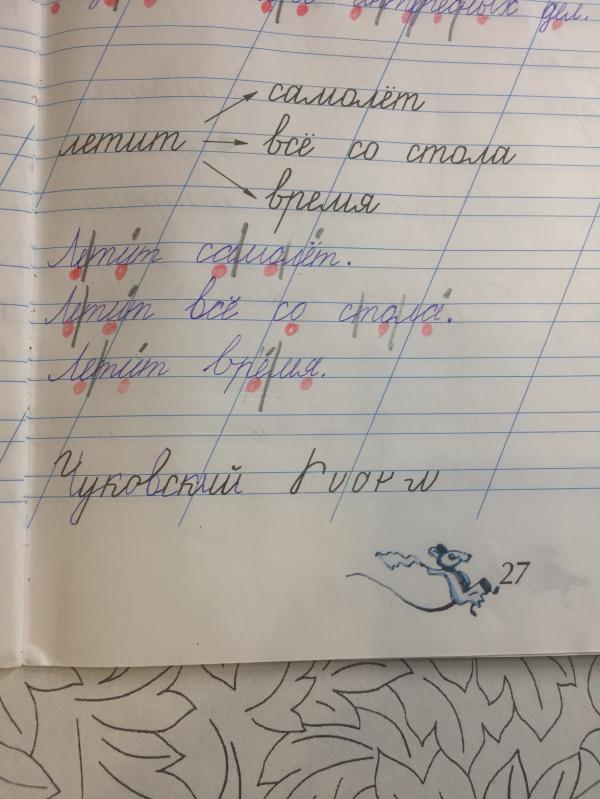 интересных дел.
самолёт
летит всё со стола
время
Летит самолёт.
Летит всё со стола.
Летит время.
Чуковский
27